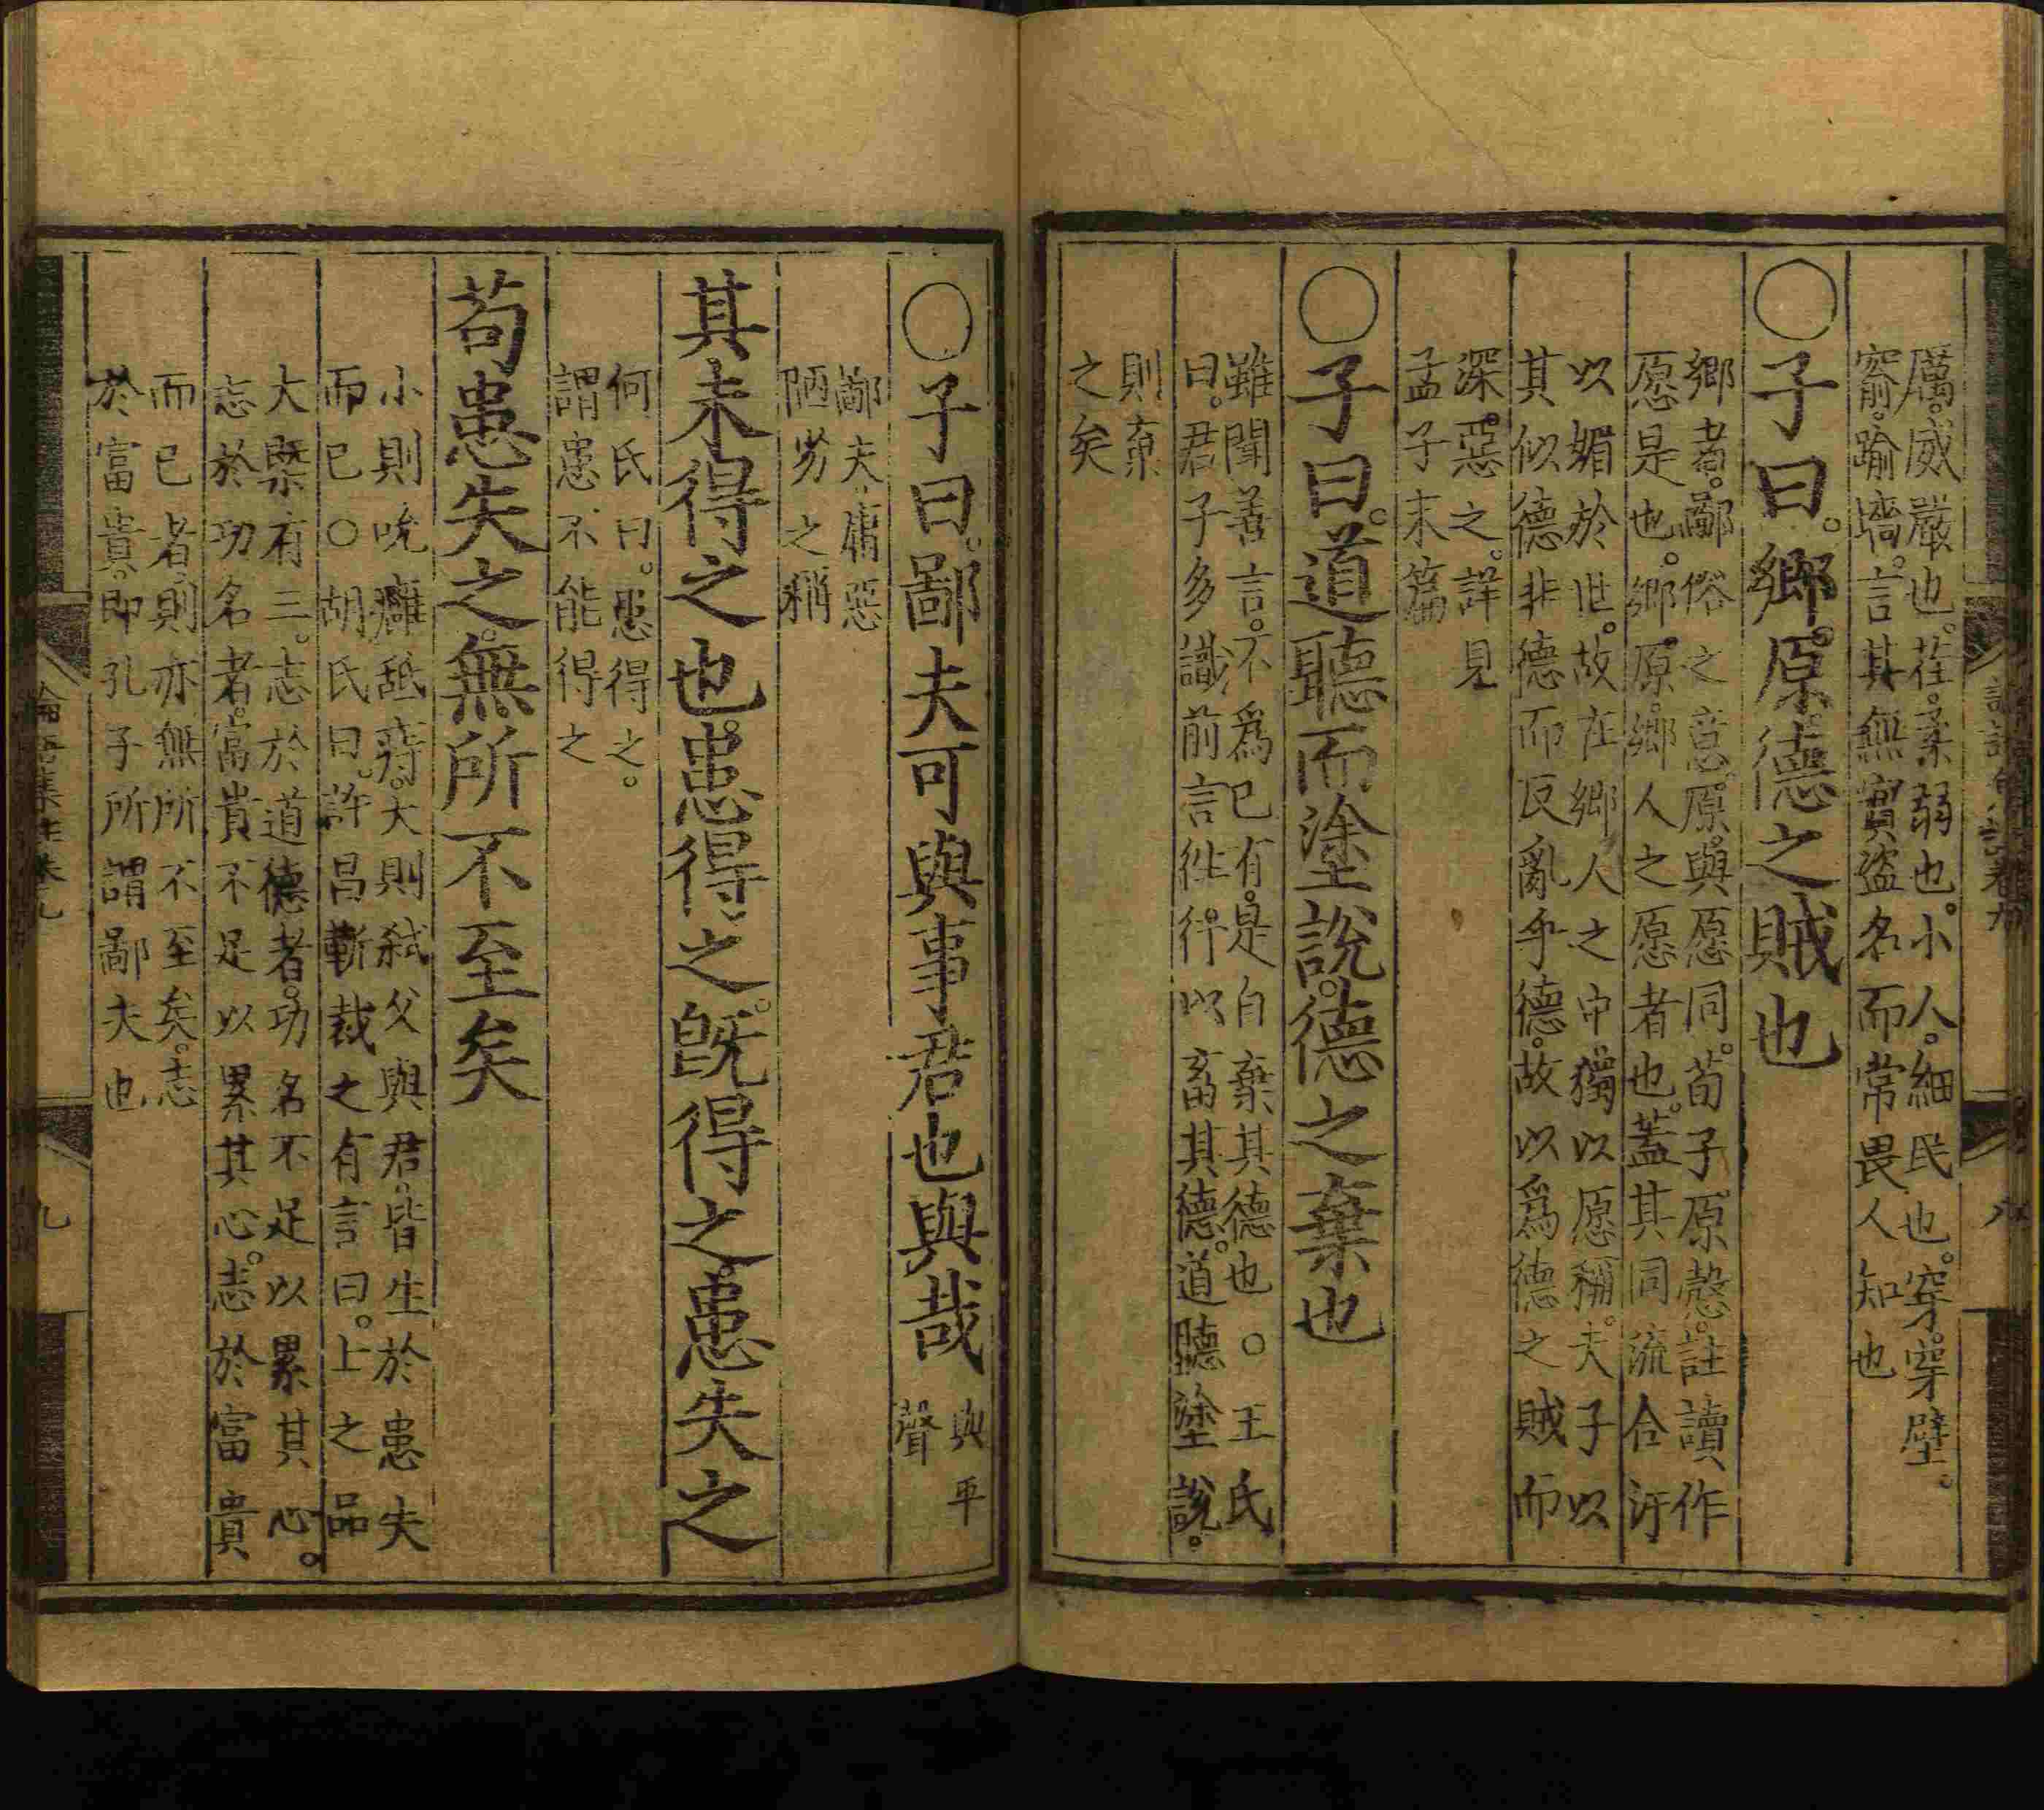 厲。威嚴也。荏。柔弱也。小人。細民也。穿。穿壁。
窬。踰墻。言其無實盜名而常畏人知也
〇子曰。鄉。原。德之賊也
鄉者。鄙俗之意。原。與愿同。荀子原愨。註讀作
愿是也。鄉。原。鄉人之愿者也。蓋其同流合汙
以媚於世。故在鄉人之中。獨以愿稱。夫子以
其似德非德而反亂乎德。故以爲德之賊而
深。惡之。詳見
孟子末篇
〇子曰。道聽而塗說。德之棄也
雖聞善言。不爲已有。是自棄其德也〇王氏
曰。君子多識前言徃行。以畜其德。道聽塗說。
則棄
之矣
〇子曰。鄙夫可與事君也與哉
與平
聲
鄙夫。庸惡
陋劣之稱
其未得之也。患得之。旣得之。患失之
何氏曰。患得之。
謂患不能得之
苟患失之。無所不至矣
小則吮癰舐痔。大則弑父與君。皆生於患失
而已〇胡氏曰。許昌靳裁之有言曰。上之品
大槩有三。志於道德者。功名不足以累其心。
志於功名者。富貴不足以累其心。志於富貴
而已者。則亦無所不至矣。志
於富貴。即孔子所謂鄙夫也
論語集註卷九
九
卷九
八